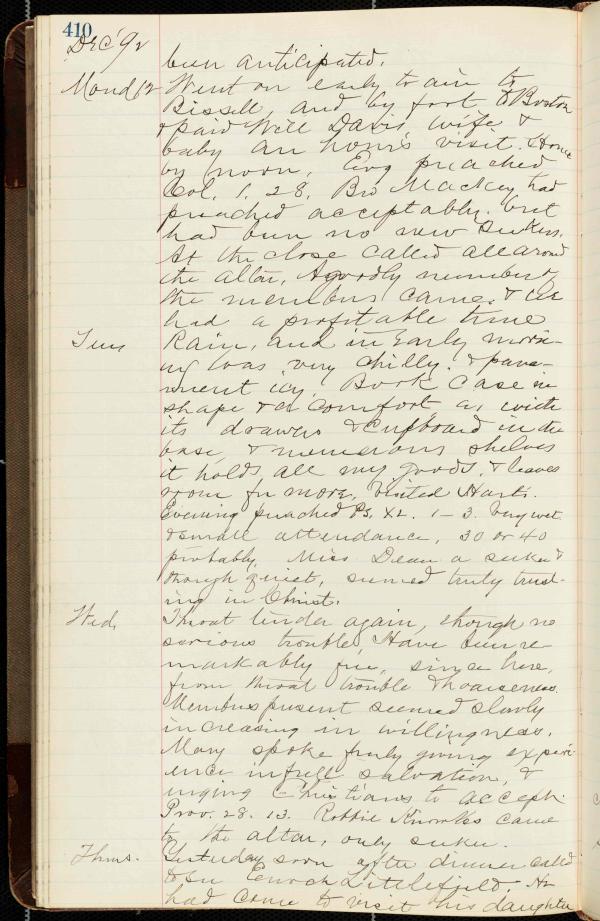 410
Dec '92
been anticipated.
Mond 12 Went on early train to
Bissell, and by foot to Buxton
& paid Will Davis, wife &
baby an hour's visit. Home
by noon. Evg preached
Col. 1. 28. Bro Mackey had
preached acceptably. but
had been no new seekers.
At the close called all around
the altar. A goodly number of
the members came. & we
had a profitable time
Tues Rain, and in early morn-
ing was very chilly. & pave-
ment icy. Book case in
shape & a comfort, as with
its drawers & cupboard in the
base, & numerous shelves
it holds all my goods, & leaves
room for more. Visited Harts.
Evening preached Ps. XL. 1-3. Very wet
& small attendance, 30 or 40
probably. Miss Dean a seeker &
though quiet, seemed truly trust-
ing in Christ.
Wed. Throat tender again, though no
serious trouble. Have been re-
markably free, since here,
from throat trouble & hoarseness.
Members present seemed slowly
increasing in willingness.
Mary spoke freely giving experi-
ence in full salvation, &
urging Christians to accept.
Prov. 28. 13. Robbie Knowles came
to the altar, only seeker.
Thurs. Yesterday soon after dinner called
to see Enoch Littlefield. He
had come to visit his daughter